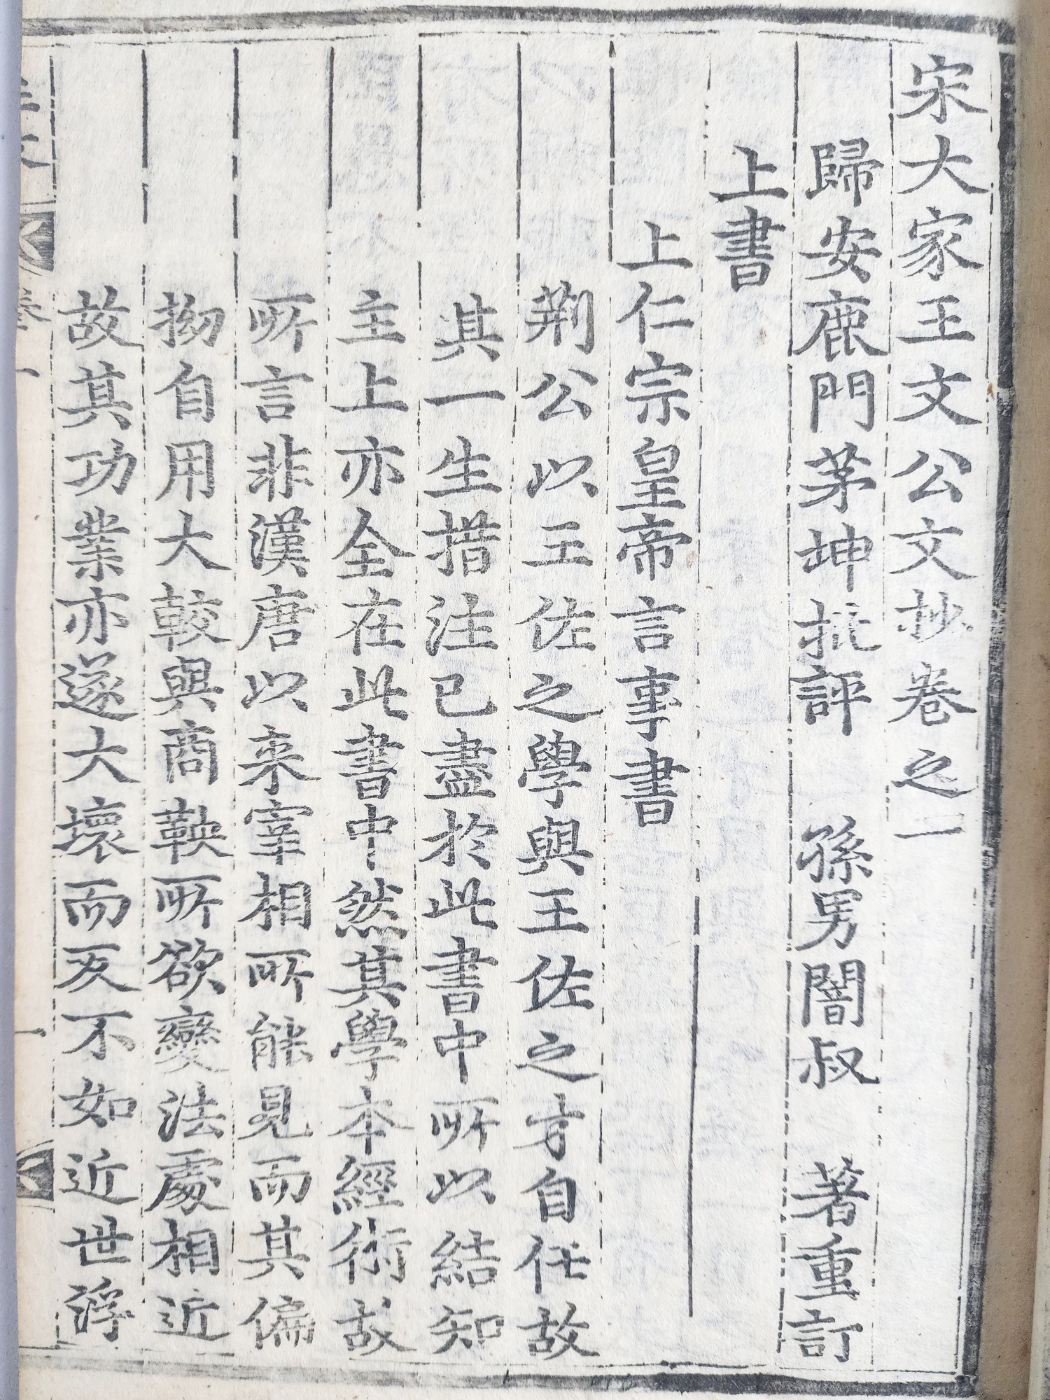 宋大家王文公文抄卷之一
歸安鹿門茅坤批評　孫男闇叔　著重訂
上書
上仁宗皇帝言事書
荆公以王佐之學與王佐之才自任故
其一生措注已盡於此書中所以結知
主上亦全在此書中然其學本經術故
所言非漢唐以来宰相所能見而其偏
拗自用大較與商鞅所欲變法處相近
故其功業亦遂大壞而反不如近世浮
卷一
一